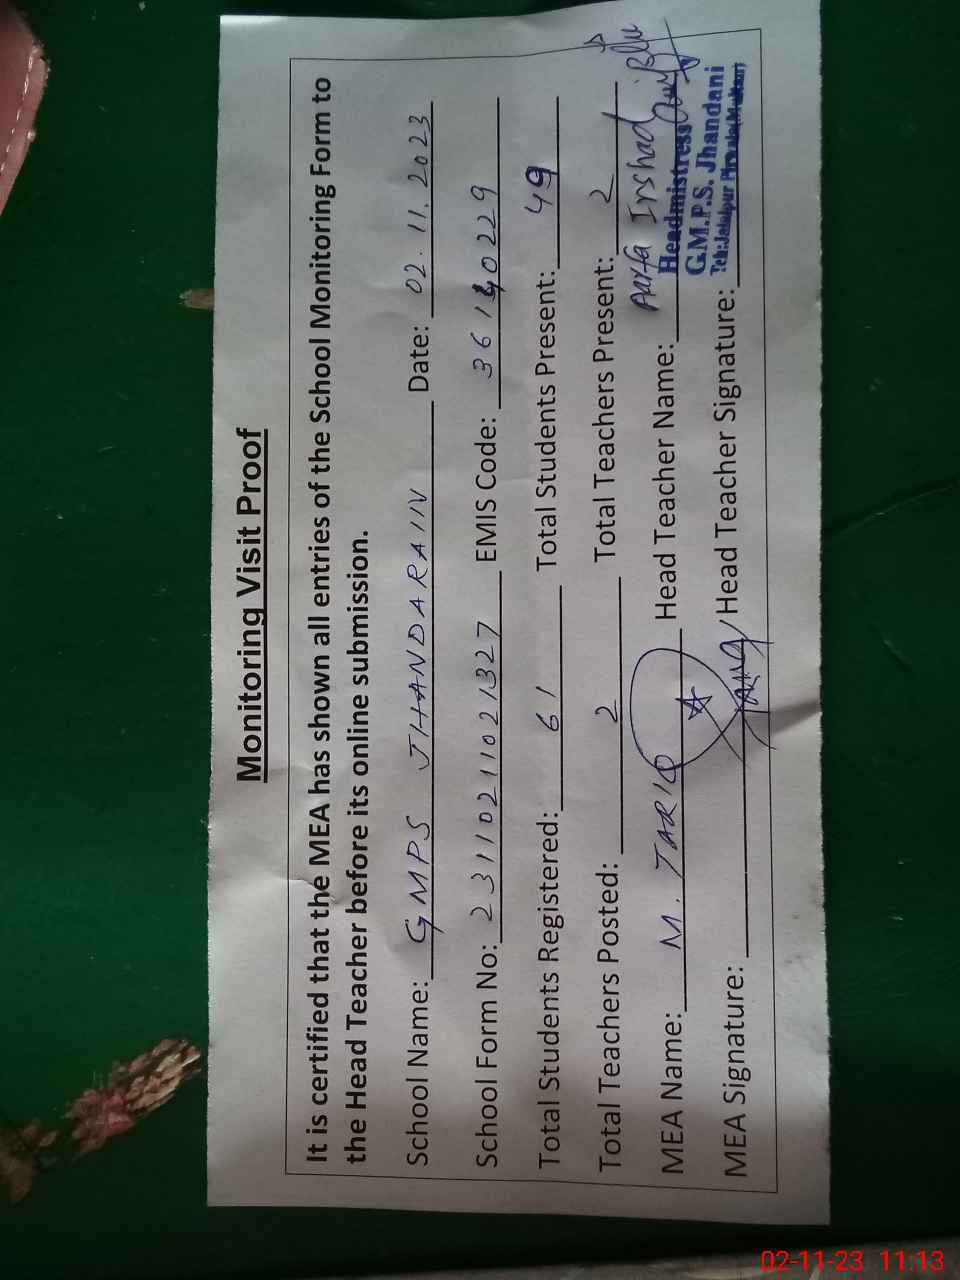 Monitoring Visit Proof
It is certified that the MEA has shown all entries of the School Monitoring Form to
the Head Teacher before its online submission.
School Name: GMPS JHANDARAIN Date: 02.11.2023
School Form No: 23110211021327 EMIS Code: 36140229
Total Students Registered: 61 Total Students Present: 49
Total Teachers Posted: 2 Total Teachers Present: 2
MEA Name: M. TARIQ Head Teacher Name: Aarfa Irshad
Headmistress
G.M.P.S. Jhandani
Teh:Jalalpur Pirwala(Multan)
MEA Signature: Head Teacher Signature:
02-11-23 11:13